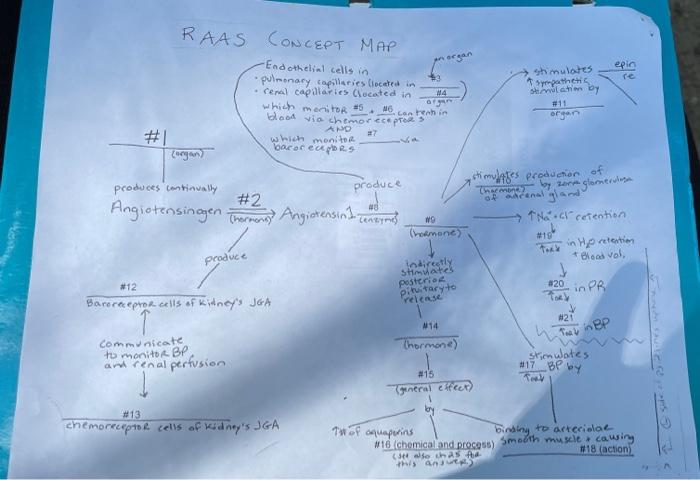 RAAS CONCEPT MAP
an organ
Endothelial cells in
• pulmonary capillaries (located in #3
• renal capillaries (located in #4
organ
which monitor #5 + #6 content in
blood via chemoreceptors
AND
which monitor #7 via
baroreceptors
stimulates epin
↑ sympathetic re
stimulation by
#11
organ
#1
(organ)
produces continually
Angiotensinogen #2 (hormone) Angiotensin 1
produce
#8
(enzyme)
#9
(hormone)
stimulates production of
#10
(hormone) by zona glomerulosa
of adrenal gland
↑ Na+ + Cl- retention
#19
↑ or ↓ in H2O retention
+ Blood vol.
#20
↑ or ↓ in PR
#21
↑ or ↓ in BP
produce
#12
Baroreceptor cells of kidney's JGA
communicate
to monitor BP
and renal perfusion
#13
chemoreceptor cells of kidney's JGA
indirectly
stimulates
posterior
pituitary to
release
#14
(hormone)
#15
(general effect)
by
↑ # of aquaporins
#16 (chemical and process)
(see also ch 25 for
this answer)
stimulates
#17 BP by
↑ or ↓
binding to arteriolar
smooth muscle + causing
#18 (action)